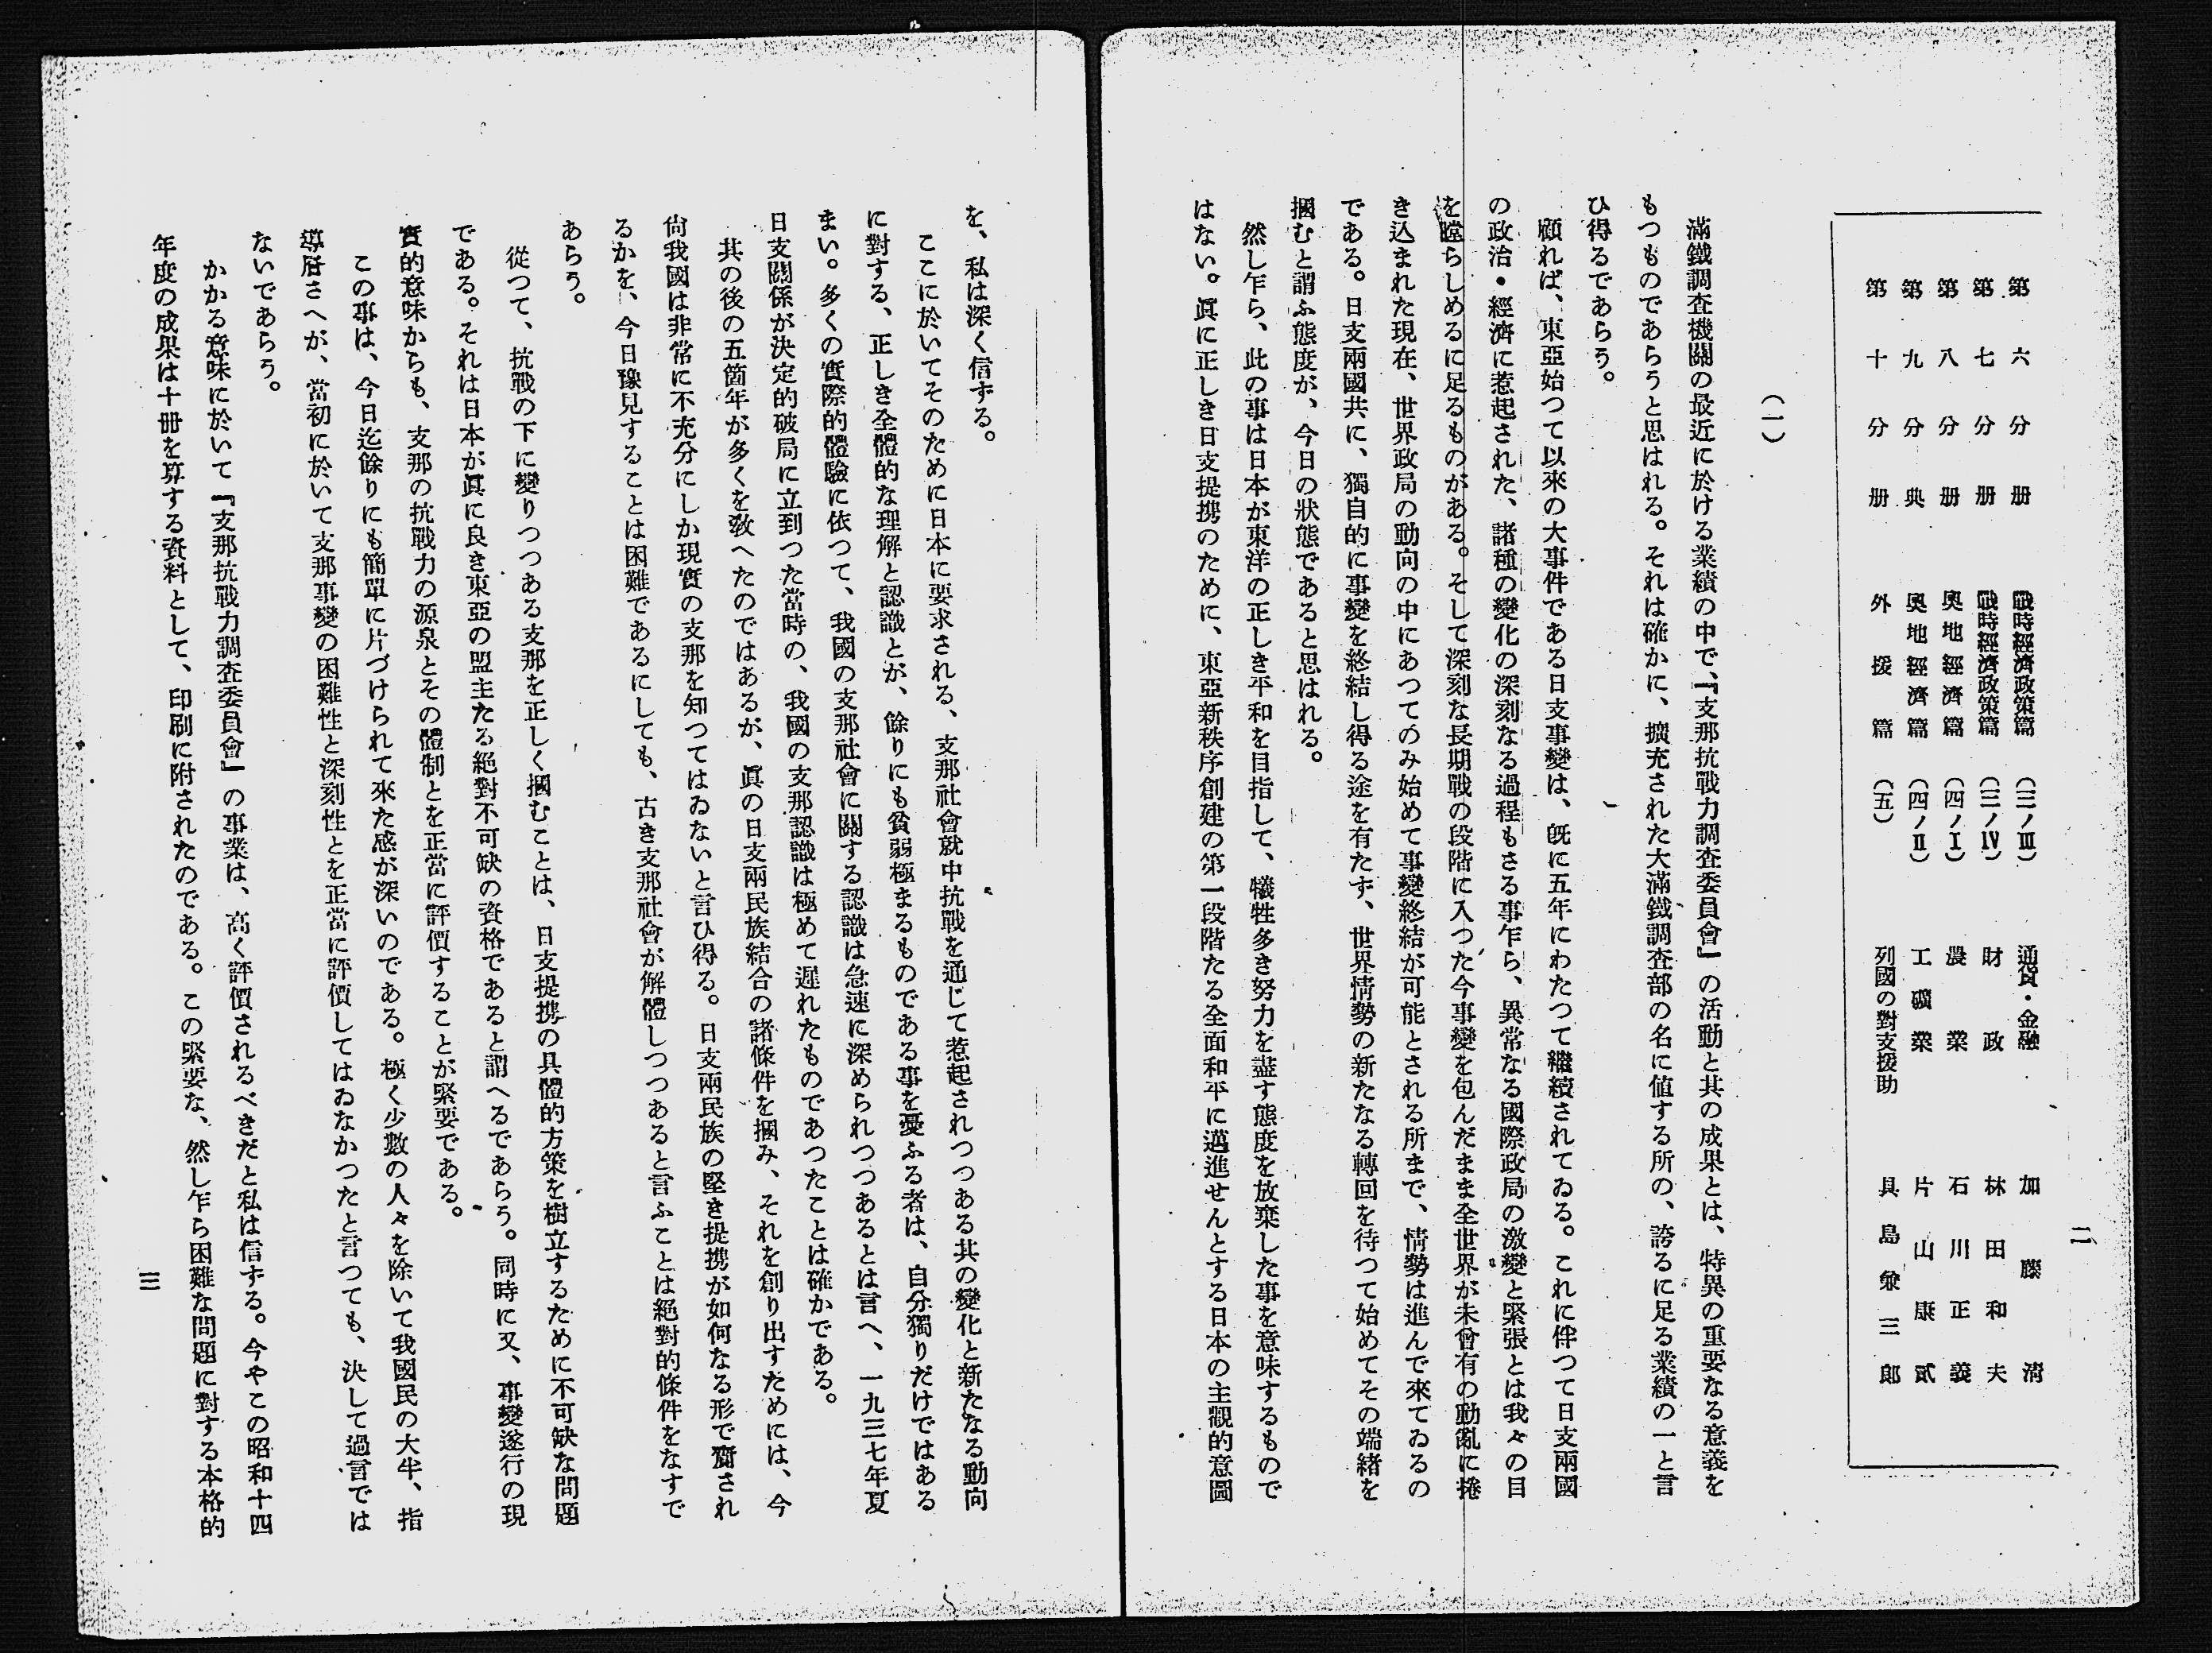 二
第六分册 戰時經濟政策篇 (三ノⅢ) 通貨・金融 加藤清
第七分册 戰時經濟政策篇 (三ノⅣ) 財政 林田和夫
第八分册 奧地經濟篇 (四ノⅠ) 農業 石川正義
第九分典 奧地經濟篇 (四ノⅡ) 工礦業 片山康貳
第十分册 外援篇 (五) 列國の對支援助 具島兼三郎
(一)
滿鐵調査機關の最近に於ける業績の中で、『支那抗戰力調査委員會』の活動と其の成果とは、特異の重要なる意義を
もつものであらうと思はれる。それは確かに、擴充された大滿鐵調査部の名に値する所の、誇るに足る業績の一と言
ひ得るであらう。
顧れば、東亞始つて以來の大事件である日支事變は、旣に五年にわたつて繼續されてゐる。これに伴つて日支兩國
の政治・經濟に惹起された、諸種の變化の深刻なる過程もさる事乍ら、異常なる國際政局の激變と緊張とは我々の目
を瞠らしめるに足るものがある。そして深刻な長期戰の段階に入つた今事變を包んだまま全世界が未曾有の動亂に捲
き込まれた現在、世界政局の動向の中にあつてのみ始めて事變終結が可能とされる所まで、情勢は進んで來てゐるの
である。日支兩國共に、獨自的に事變を終結し得る途を有たず、世界情勢の新たなる轉回を待つて始めてその端緒を
摑むと謂ふ態度が、今日の狀態であると思はれる。
然し乍ら、此の事は日本が東洋の正しき平和を目指して、犧牲多き努力を盡す態度を放棄した事を意味するもので
はない。眞に正しき日支提携のために、東亞新秩序創建の第一段階たる全面和平に邁進せんとする日本の主觀的意圖
を、私は深く信ずる。
ここに於いてそのために日本に要求される、支那社會就中抗戰を通じて惹起されつつある其の變化と新たなる動向
に對する、正しき全體的な理解と認識とが、餘りにも貧弱極まるものである事を憂ふる者は、自分獨りだけではある
まい。多くの實際的體驗に依つて、我國の支那社會に關する認識は急速に深められつつあるとは言へ、一九三七年夏
日支關係が決定的破局に立到つた當時の、我國の支那認識は極めて遲れたものであつたことは確かである。
其の後の五箇年が多くを敎へたのではあるが、眞の日支兩民族結合の諸條件を摑み、それを創り出すためには、今
尙我國は非常に不充分にしか現實の支那を知つてはゐないと言ひ得る。日支兩民族の堅き提携が如何なる形で齎され
るかを、今日豫見することは困難であるにしても、古き支那社會が解體しつつあると言ふことは絕對的條件をなすで
あらう。
從つて、抗戰の下に變りつつある支那を正しく摑むことは、日支提携の具體的方策を樹立するために不可缺な問題
である。それは日本が眞に良き東亞の盟主たる絕對不可缺の資格であると謂へるであらう。同時に又、事變遂行の現
實的意味からも、支那の抗戰力の源泉とその體制とを正當に評價することが緊要である。
この事は、今日迄餘りにも簡單に片づけられて來た感が深いのである。極く少數の人々を除いて我國民の大半、指
導層さへが、當初に於いて支那事變の困難性と深刻性とを正當に評價してはゐなかつたと言つても、決して過言では
ないであらう。
かかる意味に於いて『支那抗戰力調査委員會』の事業は、高く評價されるべきだと私は信ずる。今やこの昭和十四
年度の成果は十册を算する資料として、印刷に附されたのである。この緊要な、然し乍ら困難な問題に對する本格的
三